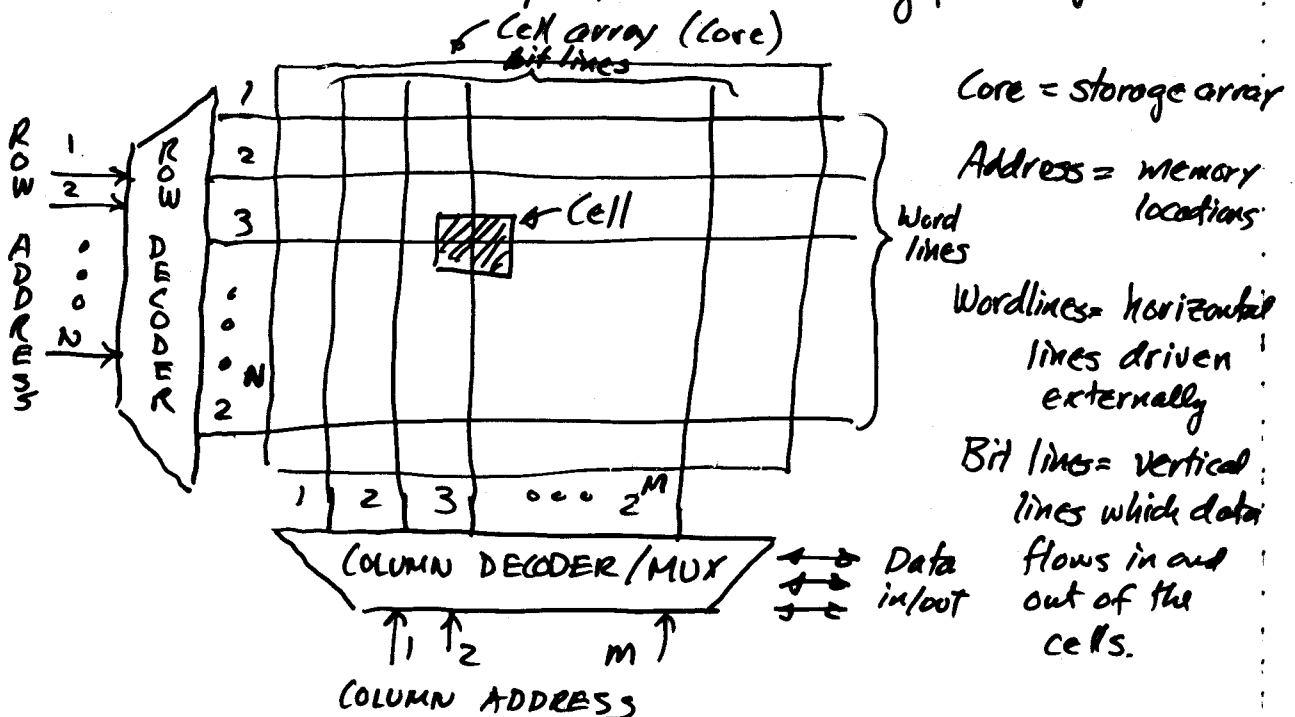 Cell array (Core)
bit lines
ROW ADDRESS
1
2
N
ROW DECODER
1
2
3
2^N
Cell
Word
lines
1 2 3 ... 2^M
COLUMN DECODER/MUX
Data
in/out
1 2 m
COLUMN ADDRESS
Core = storage array
Address = memory
locations
Wordlines = horizontal
lines driven
externally
Bit lines = vertical
lines which data
flows in and
out of the
cells.